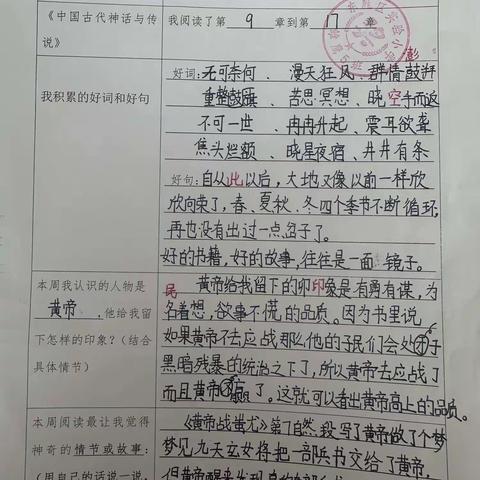 《中国古代神话与传说》
我阅读了第 9 章到第 17 章
我积累的好词和好句
好词：无可奈何、漫天狂风、群情鼓舞
重整鼓旗、苦思冥想、空手而返
不可一世、冉冉升起、震耳欲聋
焦头烂额、晓星夜宿、井井有条
好句：自从此以后，大地又像以前一样欣
欣向荣了，春、夏秋、冬四个季节不断循环，
再也没有出过一点岔子了。
好的书籍，好的故事，往往是一面 镜子。
本周我认识的人物是
黄帝，他给我留
下怎样的印象？（结合
具体情节）
民 黄帝给我留下的印象是有勇有谋，为
名着想，欲事不慌的品质。因为书里说
如果黄帝不去应战那么他的子民们会处于
黑暗残暴的统治之下了，所以黄帝去应战了
而且黄帝 了。这就可以看出黄帝高上的品质。
本周阅读最让我觉得
神奇的情节或故事：
（用自己的话说一说，
《黄帝战蚩尤》第7自然，我写了黄帝做了个梦
梦见九天玄女将把一部兵书交给了黄帝，
但黄帝醒来发现